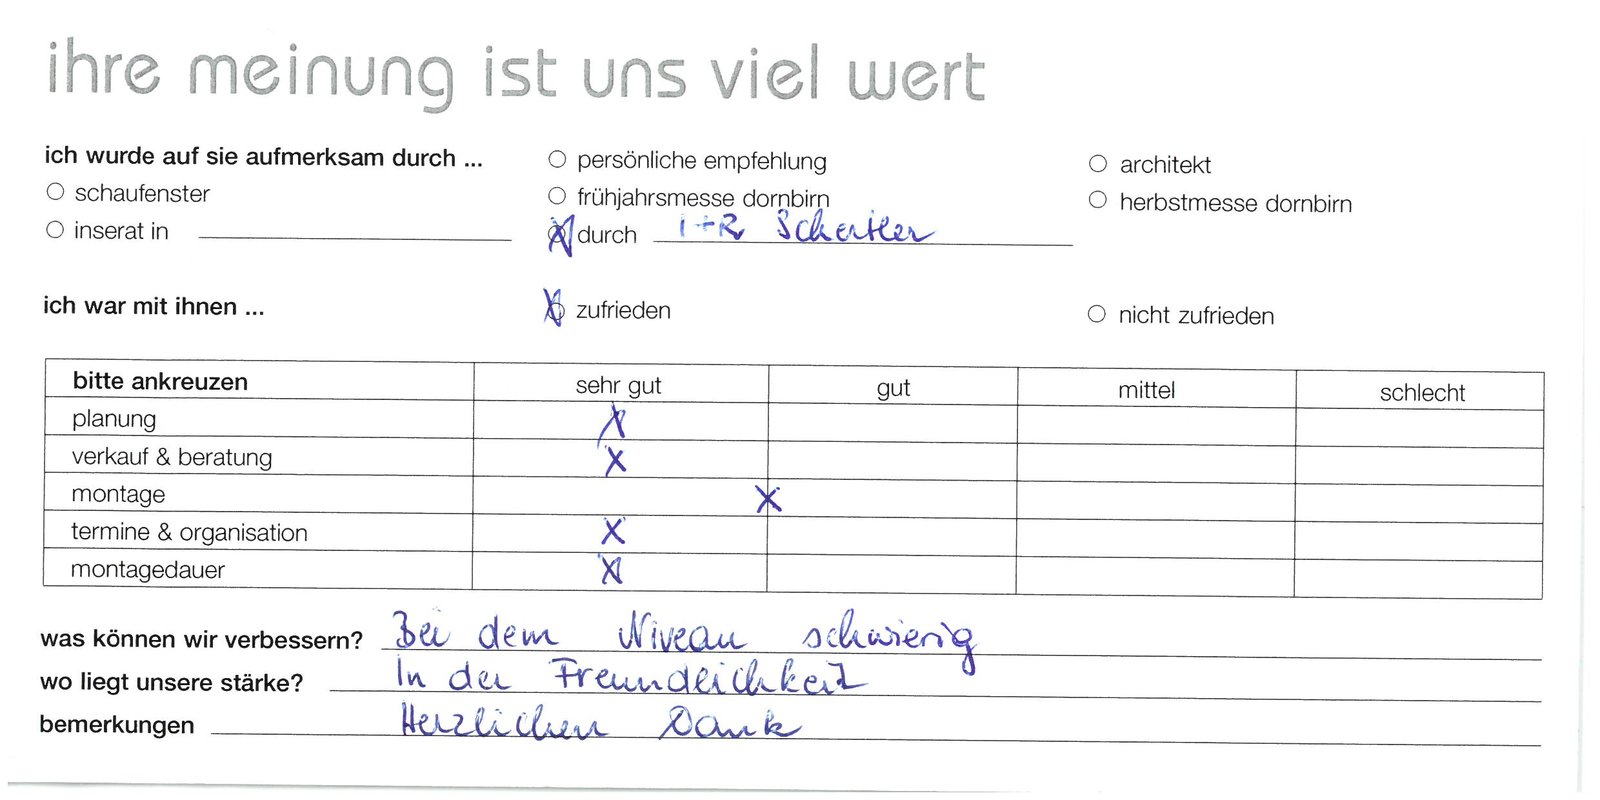 ihre meinung ist uns viel wert
ich wurde auf sie aufmerksam durch ... ○ persönliche empfehlung ○ architekt
○ schaufenster ○ frühjahrsmesse dornbirn ○ herbstmesse dornbirn
○ inserat in ☒ durch i+R Schertler
ich war mit ihnen ... ☒ zufrieden ○ nicht zufrieden
bitte ankreuzen sehr gut gut mittel schlecht
planung X
verkauf & beratung X
montage X
termine & organisation X
montagedauer X
was können wir verbessern? Bei dem Niveau schwierig
wo liegt unsere stärke? In der Freundlichkeit
bemerkungen Herzlichen Dank